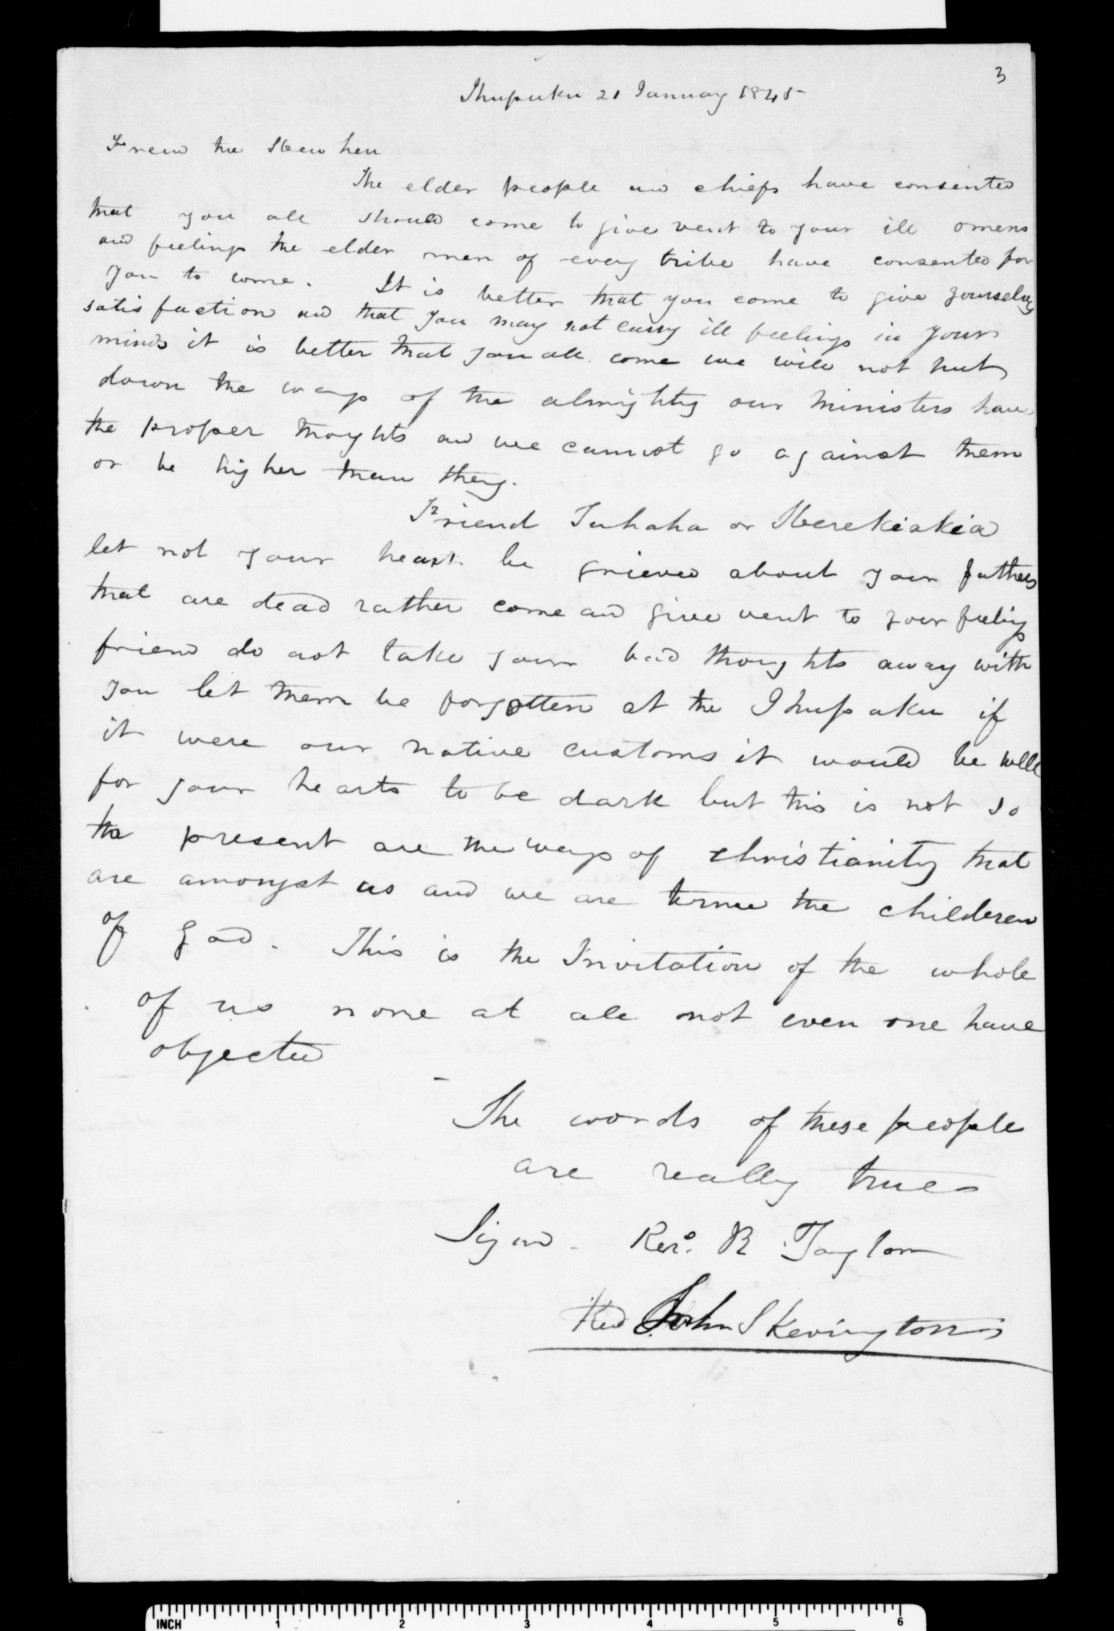 3
Ihupuku 21 January 1845
Friend the Heu heu
The elder people and chiefs have consented
that you all should come to give vent to your ill omens
and feelings the elder men of every tribe have consented for
you to come. It is better that you come to give yourselves
satisfaction and that you may not carry ill feelings in your
minds it is better that you all come we will not put
down the ways of the almighty our ministers have
the proper thoughts and we cannot go against them
or be higher than they.
Friend Tuhaha or Herekiekie
let not your heart be grieved about your fathers
that are dead rather come and give vent to your feelings
friend do not take your bad thoughts away with
you let them be forgotten at the Ihupuku if
it were our native customs it would be well
for your hearts to be dark but this is not so
the present are the ways of christianity that
are amongst us and we are termed the childeren
of God. This is the Invitation of the whole
of us none at all not even one have
objected
The words of these people
are really true
Signed - Revd. R Taylor
Revd John Skevington
INCH 1 2 3 4 5 6